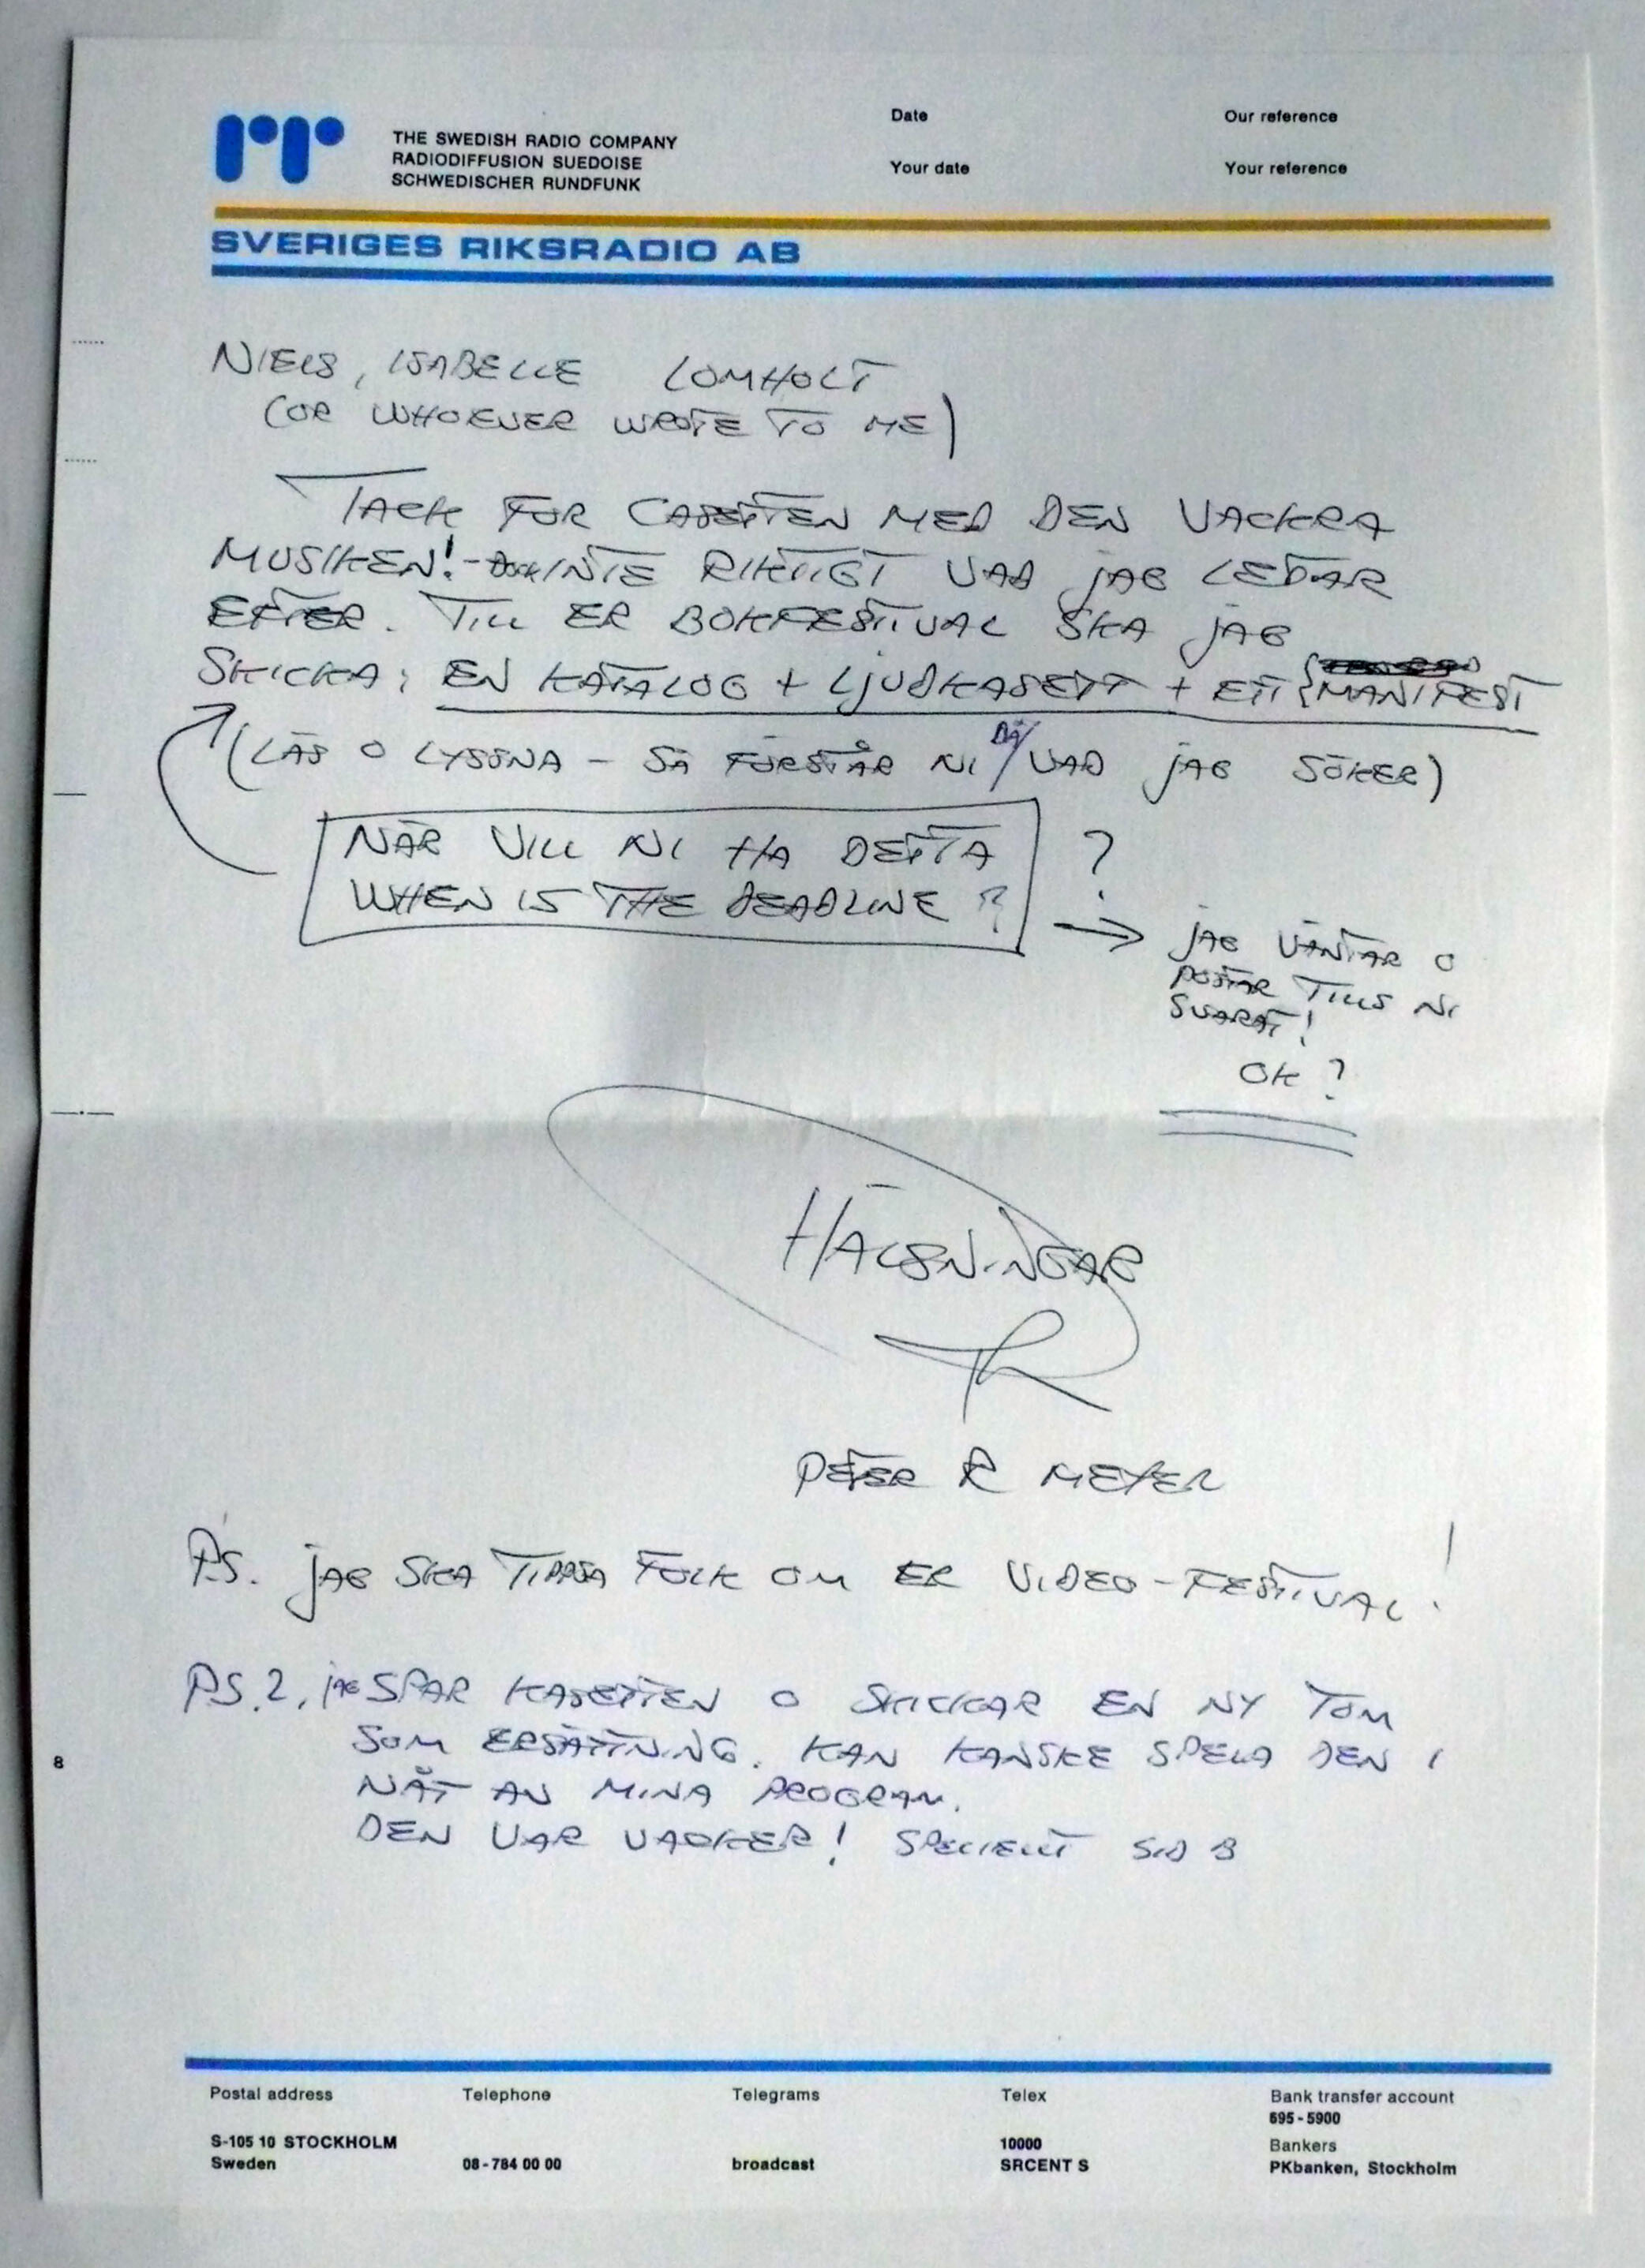 rr
THE SWEDISH RADIO COMPANY
RADIODIFFUSION SUEDOISE
SCHWEDISCHER RUNDFUNK
Date
Our reference
Your date
Your reference
SVERIGES RIKSRADIO AB
NIELS, ISABELLE LOMHOLT
(OR WHOEVER WROTE TO ME)
TACK FÖR CASETTEN MED DEN VACKRA
MUSIKEN! - INTE RIKTIGT VAD jAG LETAR
EFTER. TILL ER BOKFESTIVAL SKA jAG
SKICKA: EN KATALOG + LjUDKASETT + ETT MANIFEST
(LÄS O LYSSNA - SÅ FÖRSTÅR NI DÅ VAD jAG SÖKER)
NÄR VILL NI HA DETTA
WHEN IS THE DEADLINE ?
?
→ jAG VÄNTAR O
POSTAR TILLS NI
SVARAT!
OK ?
HÄLSNINGAR
PETER R MEYER
P.S. jAG SKA TIPPSA FOLK OM ER VIDEO-FESTIVAL!
P.S. 2, jAG SPAR KASETTEN O SKICKAR EN NY TOM
SOM ERSÄTTNING. KAN KANSKE SPELA DEN I
NÅT AV MINA PROGRAM.
DEN VAR VACKER! SPECIELLT SID B
8
Postal address
Telephone
Telegrams
Telex
Bank transfer account
695-5900
S-105 10 STOCKHOLM
10000
Bankers
Sweden
08-784 00 00
broadcast
SRCENT S
PKbanken, Stockholm